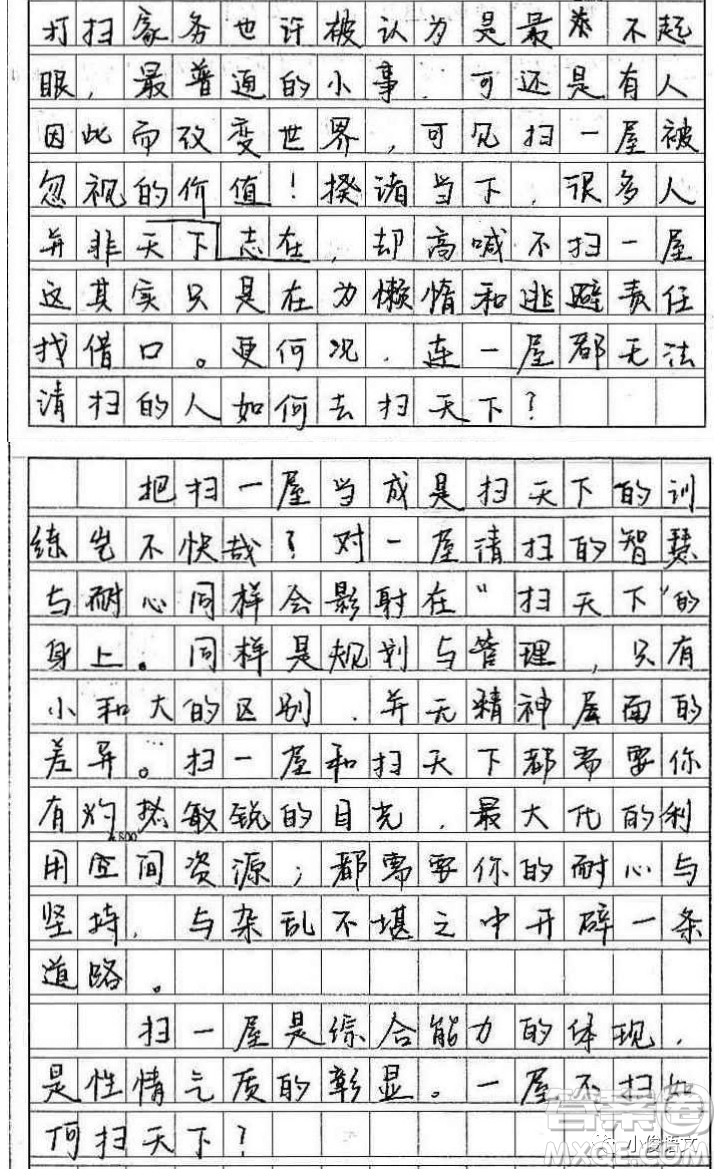 打扫家务也许被认为是最不起
眼，最普通的小事，可还是有人
因此而改变世界，可见扫一屋被
忽视的价值！揆诸当下，很多人
并非天下志在，却高喊不扫一屋
这其实只是在为懒惰和逃避责任
找借口。更何况，连一屋都无法
清扫的人如何去扫天下？
把扫一屋当成是扫天下的训
练岂不快哉？对一屋清扫的智慧
与耐心同样会影射在“扫天下”的
身上。同样是规划与管理，只有
小和大的区别，并无精神层面的
差异。扫一屋和扫天下都需要你
有灼热敏锐的目光，最大化的利
800
用空间资源；都需要你的耐心与
坚持，与杂乱不堪之中开辟一条
道路。
扫一屋是综合能力的体现，
是性情气质的彰显。一屋不扫如
何扫天下？
答案圈
MXQE.COM
小俊语文